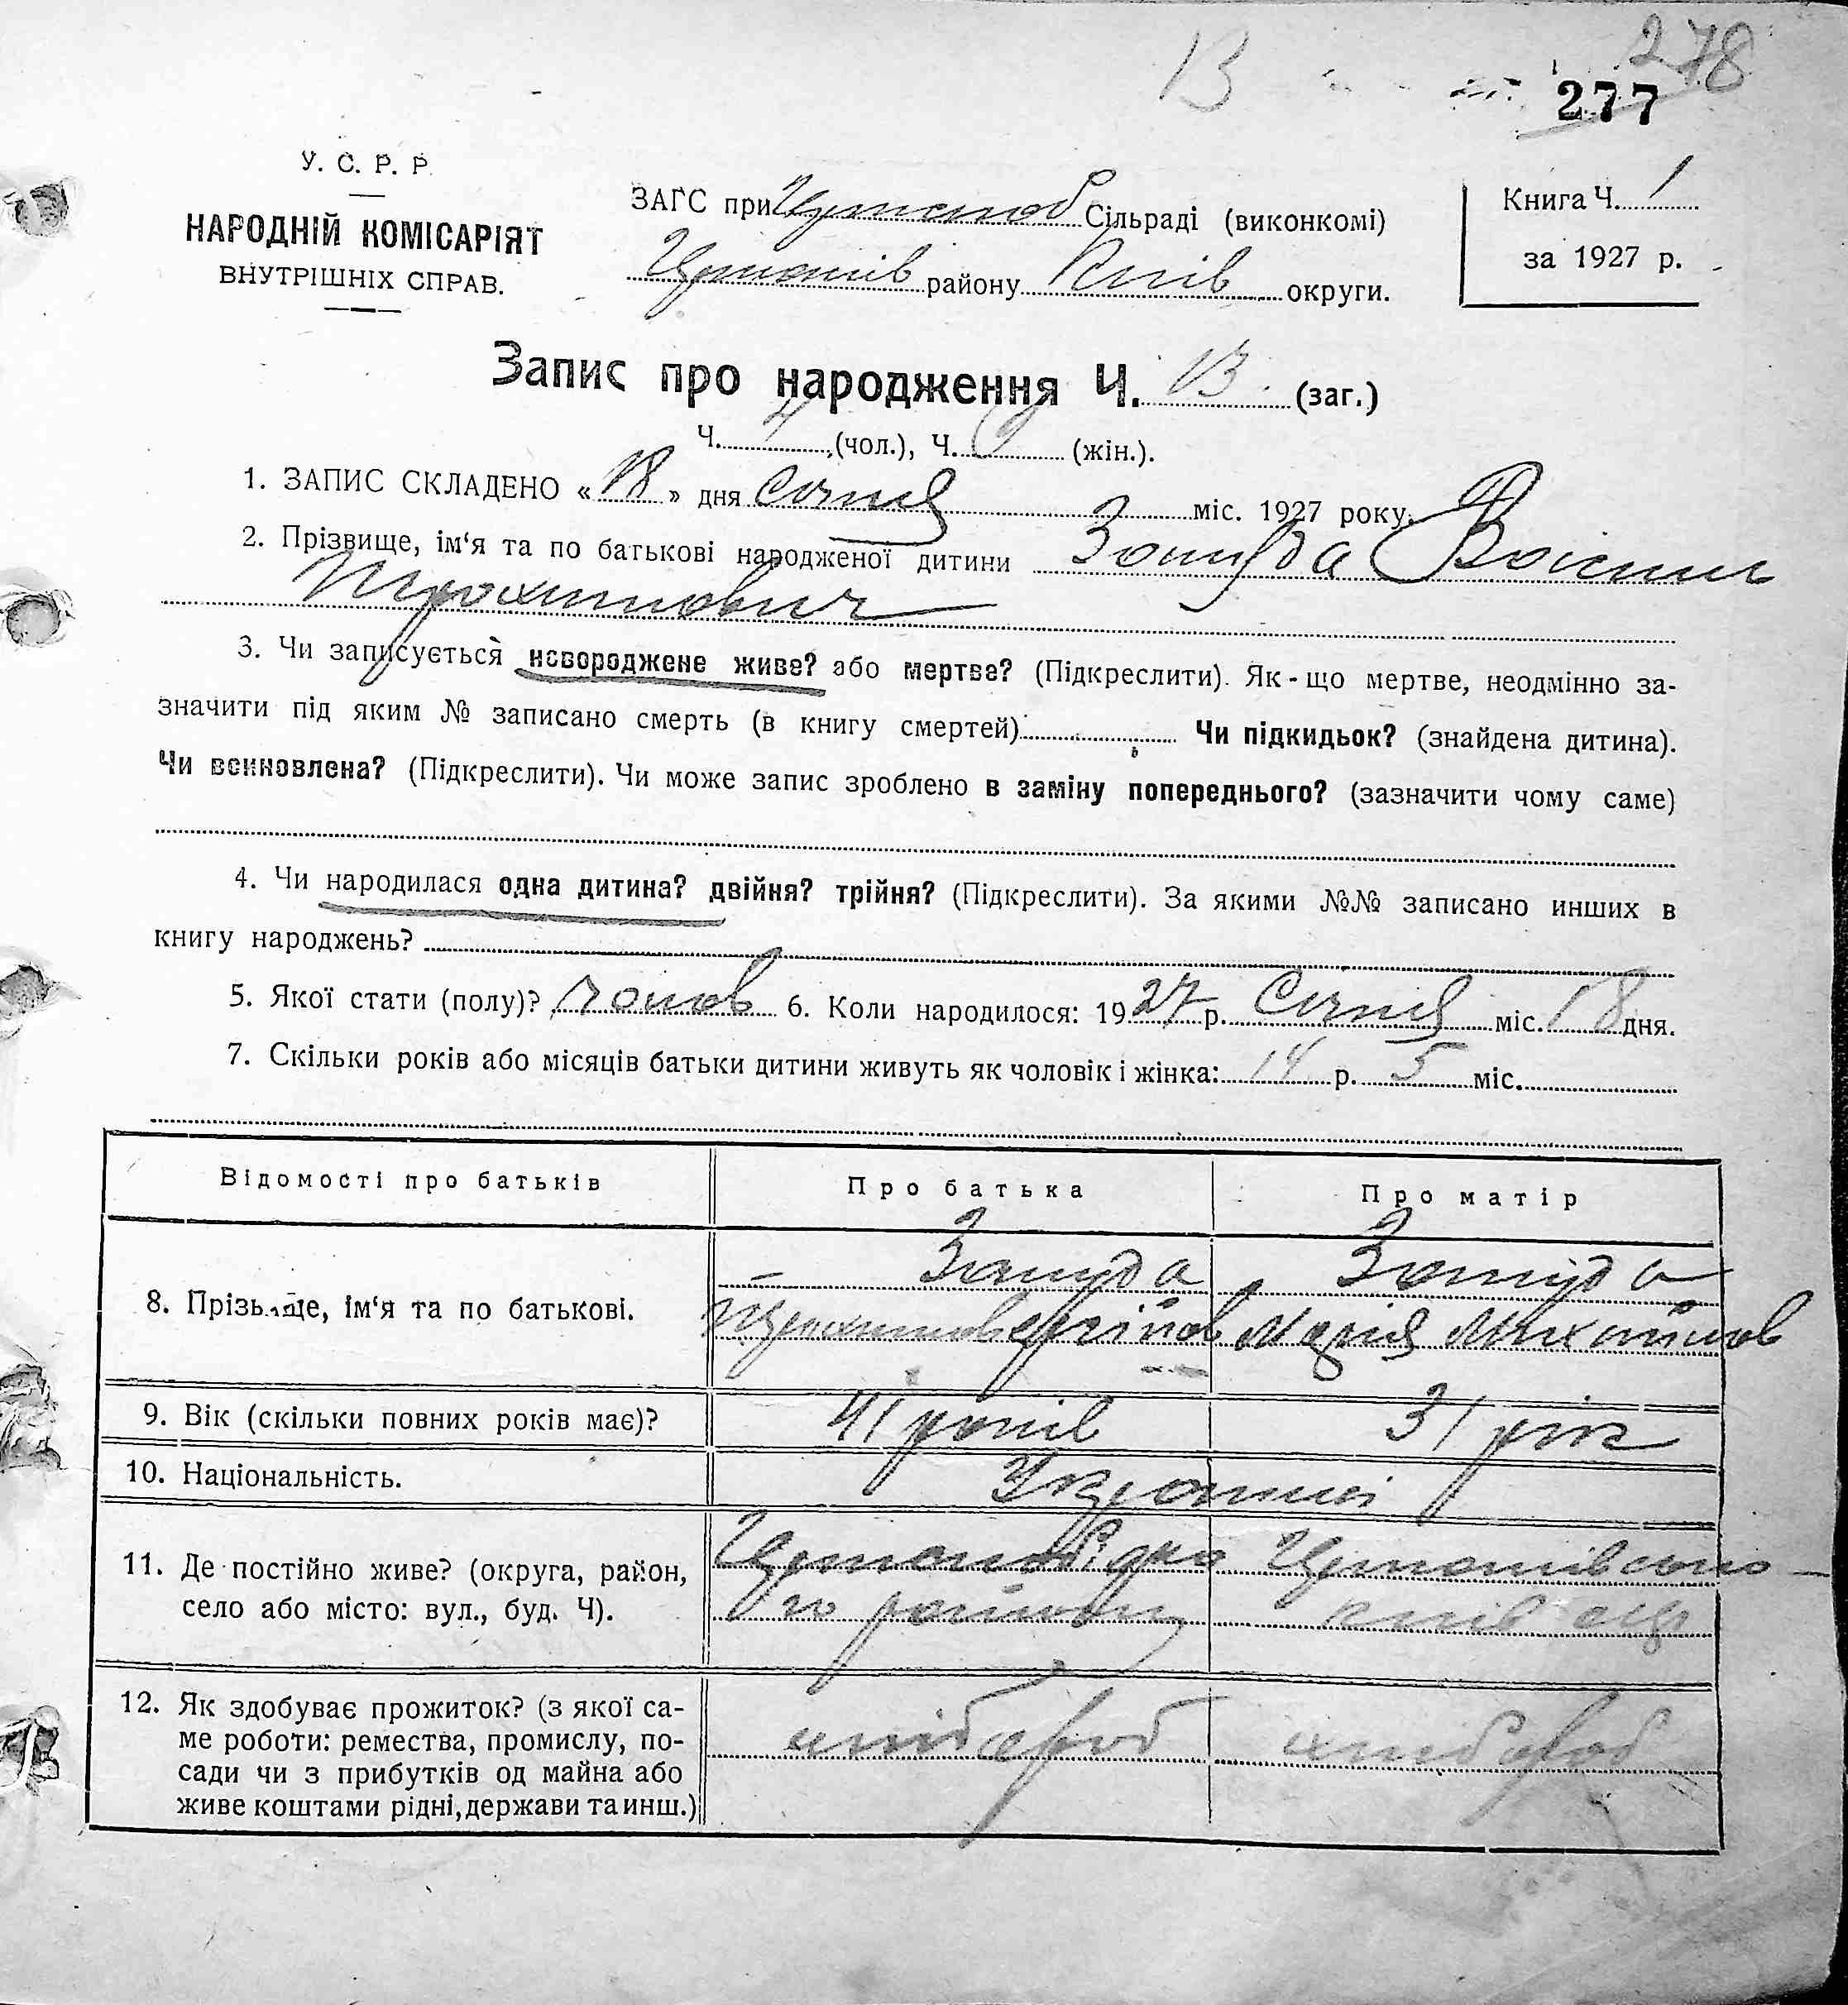 13
278
277
У. С. Р. Р.
НАРОДНІЙ КОМІСАРІЯТ
ВНУТРІШНІХ СПРАВ.
ЗАГС при Сільраді (виконкомі)
району Київ округи.
Книга Ч. 1
за 1927 р.
Запис про народження Ч. 13 (заг.)
Ч. 4 (чол.), Ч. (жін.).
1. ЗАПИС СКЛАДЕНО « 18 » дня Січня міс. 1927 року.
2. Прізвище, ім‘я та по батькові народженої дитини Василь
Трохимович
3. Чи записується новороджене живе? або мертве? (Підкреслити). Як-що мертве, неодмінно за-
значити під яким № записано смерть (в книгу смертей) Чи підкидьок? (знайдена дитина).
Чи всиновлена? (Підкреслити). Чи може запис зроблено в заміну попереднього? (зазначити чому саме)
4. Чи народилася одна дитина? двійня? трійня? (Підкреслити). За якими №№ записано инших в
книгу народжень?
5. Якої стати (полу)? чолов 6. Коли народилося: 1927 р. Січня міс. 18 дня.
7. Скільки років або місяців батьки дитини живуть як чоловік і жінка: 14 р. 5 міс.
Відомості про батьків
Про батька
Про матір
8. Прізвище, ім‘я та по батькові.
Марія Михайлов
9. Вік (скільки повних років має)?
41 років
31 рік
10. Національність.
Українці
11. Де постійно живе? (округа, район,
село або місто: вул., буд. Ч).
го району
київ окр
12. Як здобуває прожиток? (з якої са-
ме роботи: ремества, промислу, по-
сади чи з прибутків од майна або
живе коштами рідні, держави та инш.)
хлібороб
хлібороб